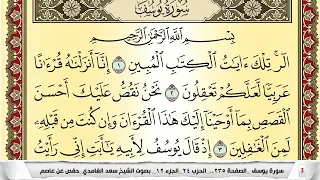 سُورَةُ يُوسُفَ
بِسْمِ ٱللَّهِ ٱلرَّحْمَٰنِ ٱلرَّحِيمِ
الٓر ۚ تِلْكَ ءَايَٰتُ ٱلْكِتَٰبِ ٱلْمُبِينِ ١ إِنَّآ أَنزَلْنَٰهُ قُرْءَٰنًا
عَرَبِيًّا لَّعَلَّكُمْ تَعْقِلُونَ ٢ نَحْنُ نَقُصُّ عَلَيْكَ أَحْسَنَ
ٱلْقَصَصِ بِمَآ أَوْحَيْنَآ إِلَيْكَ هَٰذَا ٱلْقُرْءَانَ وَإِن كُنتَ مِن قَبْلِهِۦ
لَمِنَ ٱلْغَٰفِلِينَ ٣ إِذْ قَالَ يُوسُفُ لِأَبِيهِ يَٰٓأَبَتِ إِنِّى رَأَيْتُ
سورة يوسف .. الصفحة ٢٣٥ ... الحزب ٢٤ .. الجزء ١٢ .. بصوت الشيخ سعد الغامدي. حفص عن عاصم 3